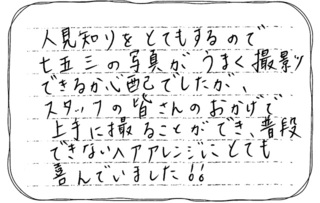 人見知りをとてもするので
七五三の写真が、うまく撮影
できるか心配でしたが、
スタッフの皆さんのおかげで
上手に撮ることができ、普段
できないヘアアレンジにとても
喜んでいました!!